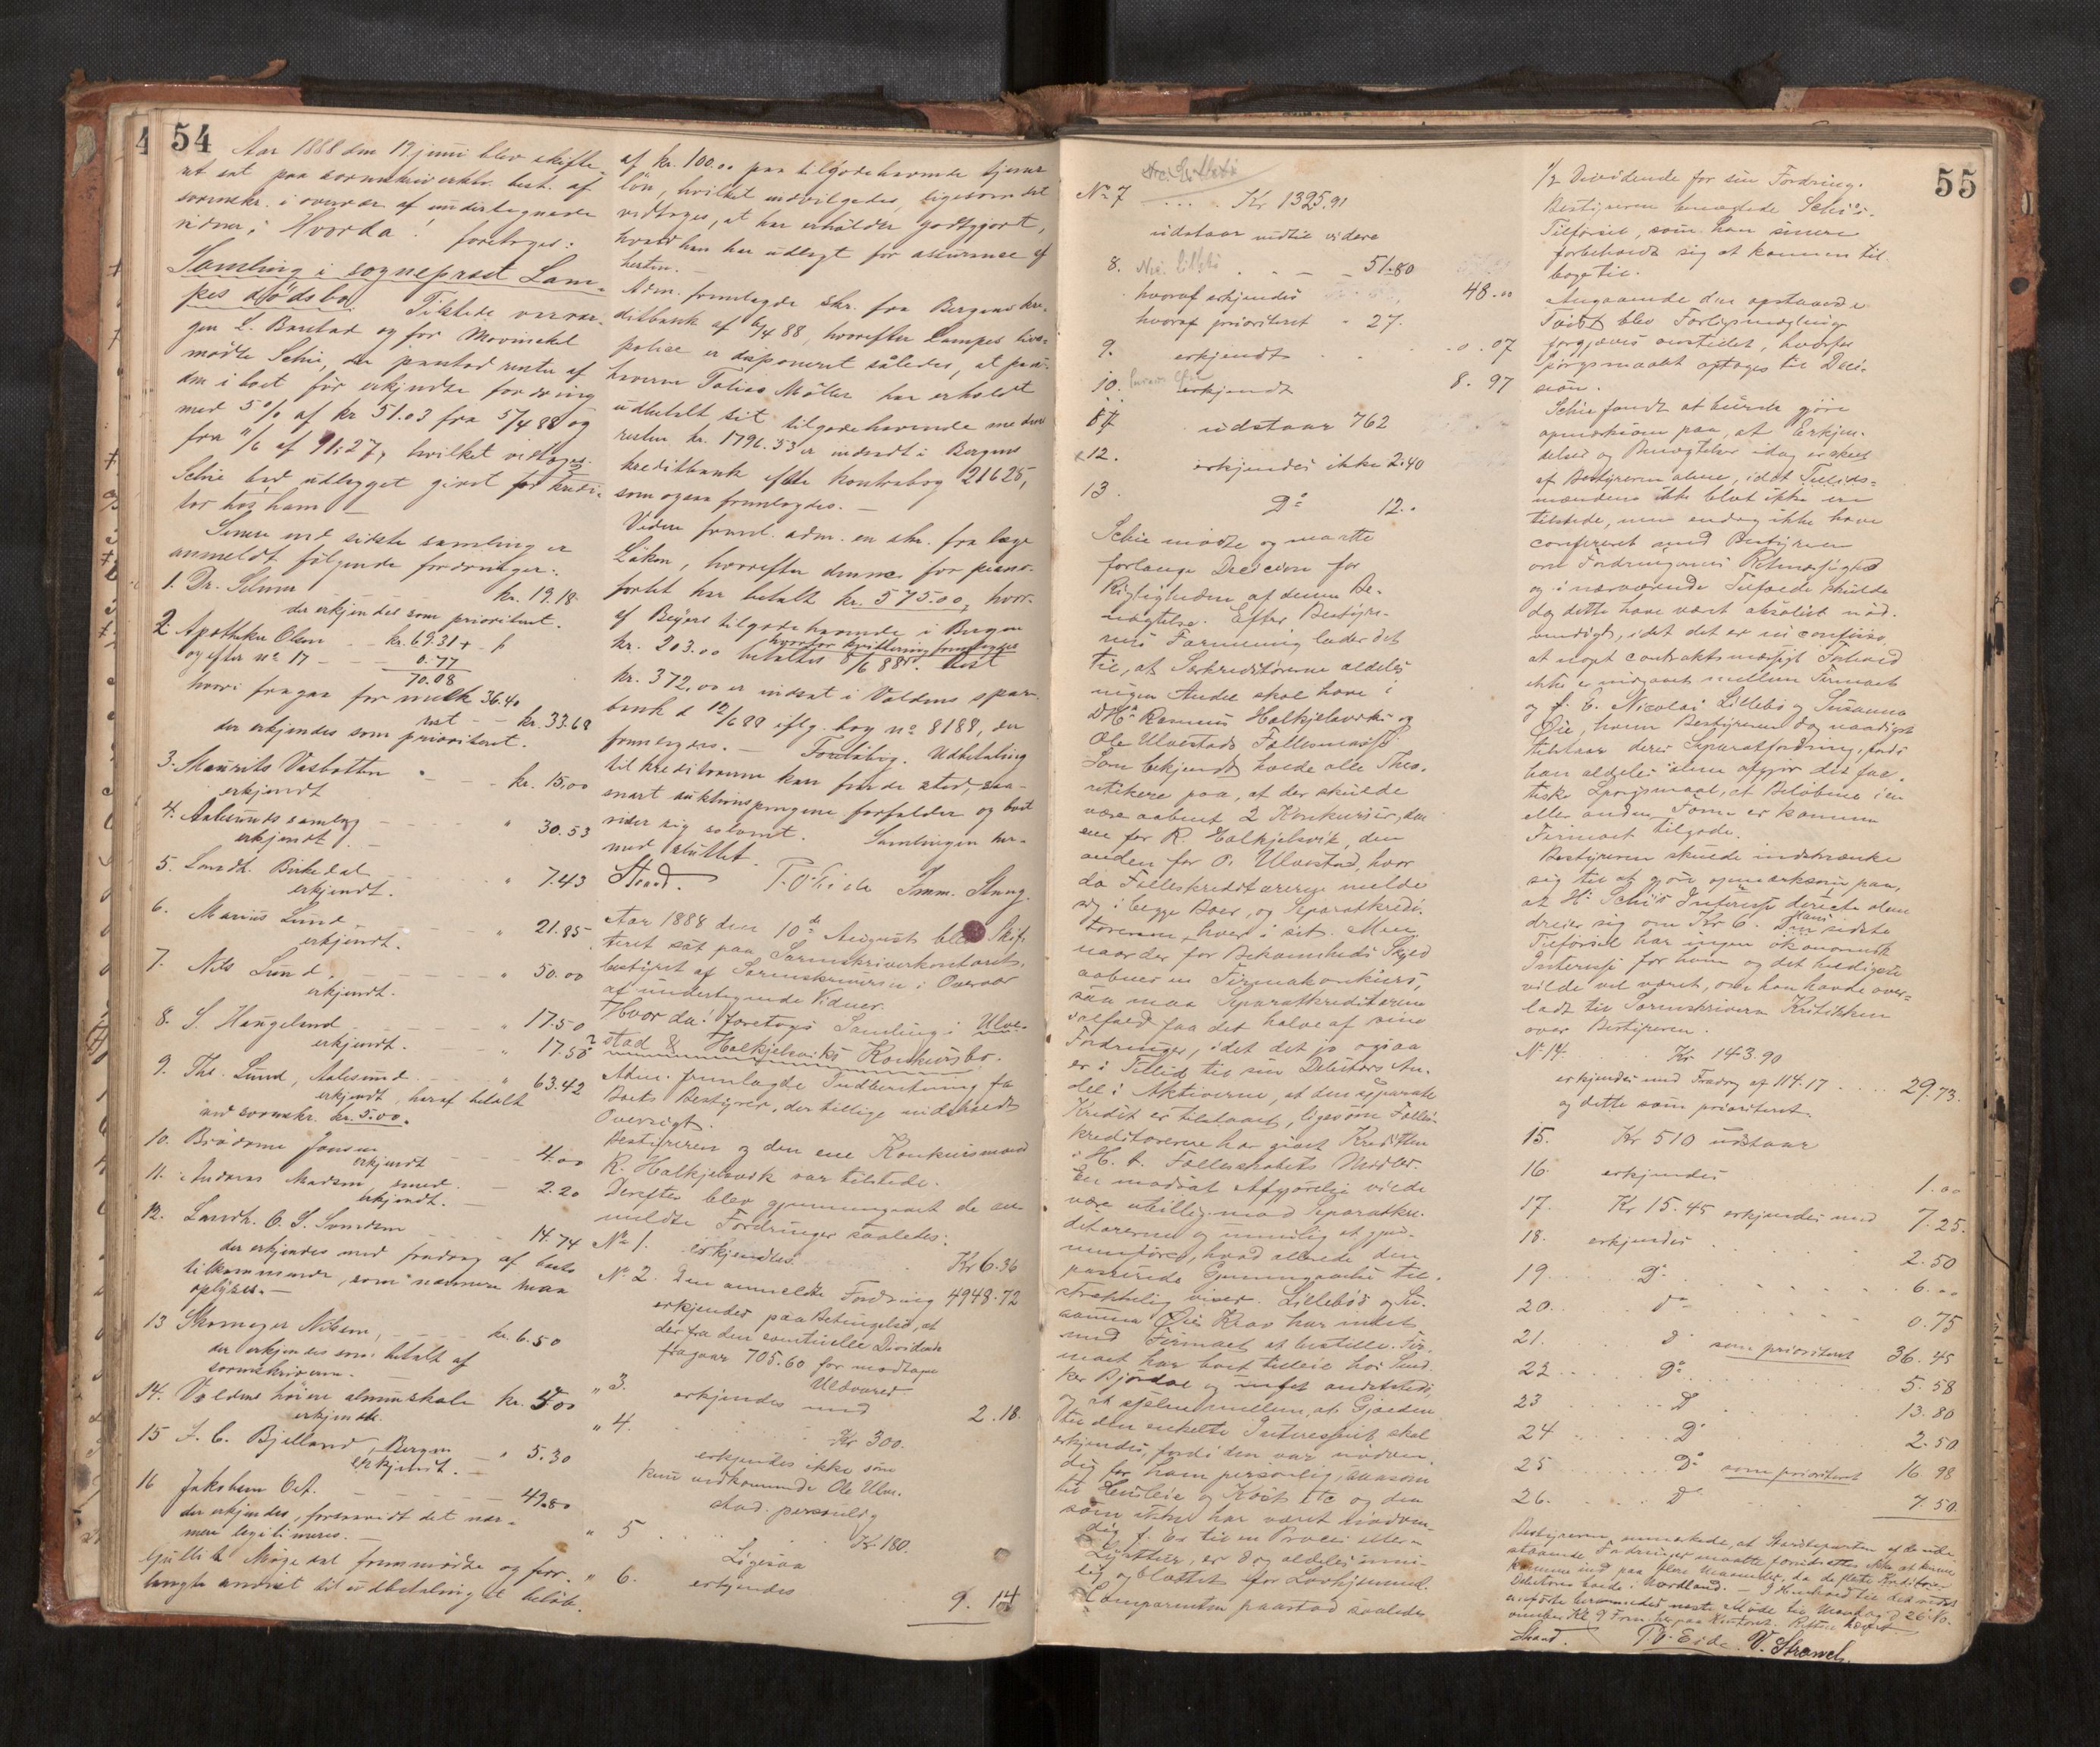 54
Aar 1888 den 19 juni blev skifte-
ret sat paa sorenskriverktr. best. af
sorenskr. i overvær af undertegnede
vidner; Hvorda! foretoges:
Samling i sogneprest Lam-
pes dødsbo. Tilstede var
gen L. Barstad og for Morinchel
mødte Schie, der paastod renter af
den i boet før erkjendte fordring
med 5% af kr 51.03 fra 5/4 88 og
fra 11/6 af 91.27, hvilket vedtoges.
Schie bad udlægget givet for kredi-
tor hos ham
Senere end sidste samling er
anmeldt følgende fordringer:
1. Dr. Selmer kr. 19.18
der erkjendes som prioriteret.
2. Apotheker Olsen - kr. 69.31 +
og efter no 17 - - 0.77
70.08
hvori fragaar for melk 36.40
rest - - kr. 33.68
der erkjendes som prioriteret.
3. Maurits Vasbotten - - kr. 15.00
erkjendt
4. Aalesunds samlag - - - " 30.53
erkjendt.
5. Landh. Birkedal - - - " 7.43
erkjendt.
6. Marius Lund - - - " 21.85
erkjendt.
7. Nils Lund. - - - " 50.00
erkjendt.
8. S. Haugeland - - - " 17.50
erkjendt. - " 17.50
9. Ths. Lund, Aalesund - - " 63.42
erkjendt, heraf betalt
ved sorenskr. kr. 5.00.
10. Brødrene Jensen - - - 4.00
erkjendt
11. Anderas Madsen, smed. - 2.20
erkjendt.
12. Landh. O. S. Svendsen - - - 14.74
der erkjendes med fradrag af boets
tilkommende, som nærmere maa
oplyses. -
13 Skomager Nilsen, - - kr. 6.50
der erkjendes som betalt af
sorenskriveren.
14. Voldens høiere almueskole kr. 5.00
erkjendt.
15 J. C. Bjelland, Bergen - " 5.30
erkjendt. -
16 Jakobsen Oset. - - - 49.80
der erkjendes, forsaavidt det nær-
mere legitimeres. -
Møgedal fremmødte og for-
langte anvist til udbetaling et beløb
af kr. 100.00 paa tilgodehavende tjener-
løn, hvilket indvilgedes, ligesom det
vedtoges, at han erholder godtgjort,
hvad han har udlagt for assurance af
hesten. -
Adm. fremlagde skr. fra Bergens kre-
ditbank af 6/4 88, hvorefter Lampes livs-
police er disponeret således, at paa-
haveren Tobias Møller har erholdt
udbetalt sit tilgodehavende medens
resten kr. 1796.53 er indsendt i Bergens
kreditbank efter kontrabog 21625,
som ogsaa fremlagdes. -
Videre freml. adm. en skr. fra læge
Løken, hvorefter denne for piano-
fortet har betalt kr. 575.00, hvor-
af Beyers tilgodehavende i Bergen
kr. 203.00 betaltes 8/6 88. Rest
hvorfor kvittering fremlagdes
kr. 372.00 er indsat i Voldens spar-
bank d 12/6 88 iflg. bog no 8188, der
fremlagdes. - Foreløbig. Udbetaling
til kreditorerne kan finde sted, saa-
snart auktionspengene forfalder og boet
viser sig solvent. Samlingen her-
med sluttet.
Strand. P. O. Eide Imm. Strang.
Aar 1888 den 10de August blev Skif-
teret sat paa Sorenskriverkontoret,
bestyret af Sorenskriveren i Overvær
af undertegnede Vidner.
Hvor da! foretoges Samling i Ulve-
stad & Halkjelsviks Konkursbo.
Adm. fremlagde Indberetning fra
Boets Bestyrer, der tillige indeholdt
Oversigt.
Bestyreren og den ene Konkursmand
R. Halkjelsvik var tilstede.
Derefter blev gjennemgaaet de an-
meldte Fordringer saaledes:
No 1. erkjendtes. Kr 6.36
No 2. Den anmeldte Fordring 4948.72
erkjendes paa Betingelse, at
der fra den eventuelle Dividende
fragaar 705.60 for modtagne
" 3. erkjendes med 2.18.
" 4. Kr 300.
erkjendes ikke som
kun vedkommende Ole Ulve-
stad personlig
" 5 Kr 180.
Ligesaa
" 6. erkjendes 9.14
No 7 ... Kr 1325.91
udstaar indtil videre
8. - - 51.80
hvoraf erkjendes 48.00
hvoraf prioriteret - 27.
9. erkjendt 0.07
10. erkjendt 8.97
11 udstaar 762
12. erkjendes ikke 2.40
13 Do 12..
Schie mødte og maatte
forlange Decision for
Rigtigheden af denne Be-
nægtelse. Efter Bestyre-
rens Formening lader det
til, at Særkreditorerne aldeles
ingen Andel skal have i
DHr Rasmus Halkjelsviks og
Ole Ulvestads Fællesmasse.
Som bekjendt holde alle Theo-
retikere paa, at der skulde
være aabnet 2 Konkurser, den
ene for R. Halkjelsvik, den
anden for O. Ulvestad, hvor
da Fælleskreditorerne melde
sig i begge Boer, og Separatkredi-
torerne hver i sit. Men
naar der for Bekvemheds Skyld
aabnes en Firmakonkurs,
saa maa Separatkreditorerne
ialfald faa det halve af sine
Fordringer, idet det jo ogsaa
er i Tillid til sin Debitors An-
del i Aktiverne, at den separate
Kredit er tilstaaet, ligesom Fælles-
kreditorerne har givet Kreditten
i H. t. Fællesskabets Midler.
En modsat Afgjørelse vilde
være ubillig mod Separatkre-
ditorerne og umulig at gjen-
nemføre, hvad allerede den
passerede Gjennemgaaelse til-
strækkelig viser. Lillebøs og Su-
sanna Øies Krav har intet
med Firmaet at bestille. Fir-
maet har boet tilleie hos Snd.
ker Bjørdal og intet andetsteds,
og at sjelne mellem, at Gjælden
til den enkelte Interessent skal
erkjendes, fordi den var nødven-
dig for ham personlig, saasom
til Husleie og Kost etc og den
som ikke har været nødven-
dig f. Ex til en Proces eller
Lystture, er dog aldeles umu-
lig og blottet for Lovhjemmel.
Comparenten paastod saaledes
55
1/2 Dividende for sin Fordring.
Bestyreren benægtede Schies
Tilførsel, som han senere
forbeholdt sig at komme til-
bage til.
Angaaende den opstaaede
Tvist blev Forligsmægling
forgjæves anstillet, hvorfor
Spørgsmaalet optages til Deci-
sion.
Schie fandt at burde gjøre
opmærksom paa, at Erkjen-
delser og Benægtelser idag er skeet
af Bestyreren alene, idet Tillids-
mændene ikke blot ikke ere
tilstede, men endog ikke have
confereret med Bestyreren
om Fordringernes Retmæssighed
og i nærværende Tilfælde skulde
dog dette have været absolut nød-
vendigt, idet det er in confesso,
at noget contraktsmæssigt Forhold
ikke er indgaaet mellem Firmaet
og f. E. Nicolai Lillebø og Susanna
Øie, hvem Bestyreren dog naadigst
tilstaar deres Separatfordring, fordi
han aldeles alene afgjør det fak-
tiske Spørgsmaal, at Beløbene i en
eller anden Form er kommen
Firmaet tilgode.
Bestyreren skulde indskrænke
sig til at gjøre opmærksom paa,
at Hr Schies Interesse direkte alene
dreier sig om Kr 6. Hans sidste
Tilførsel har ingen økonomisk
Interesse for ham og det heldigste
vilde vel været, om han havde over-
ladt til Sorenskriveren Kritikken
over Bestyreren.
No 14. Kr 143.90
erkjendes med Fradrag af 114.17 ... 29.73.
og dette som prioriteret.
15. Kr 510 udstaar
16. erkjendes 1.00
17. Kr 15.45 erkjendes med 7.25.
18. erkjendes 2.50
19 Do 6.00
20 Do 0.75
21. Do som prioriteret 36.45
22 Do 5.58
23 Do 13.80
24 Do 2.50
25 Do som prioriteret 16.98
26. Do 7.50
Bestyreren anmærkede, at Størsteparten af de ude-
staaende Fordringer maatte forudsættes ikke at kunne
komme ind paa flere Maaneder, da de fleste
Debitorer havde i Nordland. - I Henhold til det
anførte berammedes næste Møde til Mandag d 26 No-
vember Kl. 9 Form. her paa Kontoret. Retten hævet.
Strand. P. O. Eide. V. Strand.